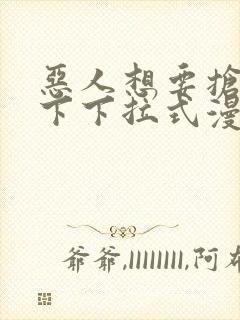 惡人想要搶
下下拉式漫
爷爷,llllllll,阿布